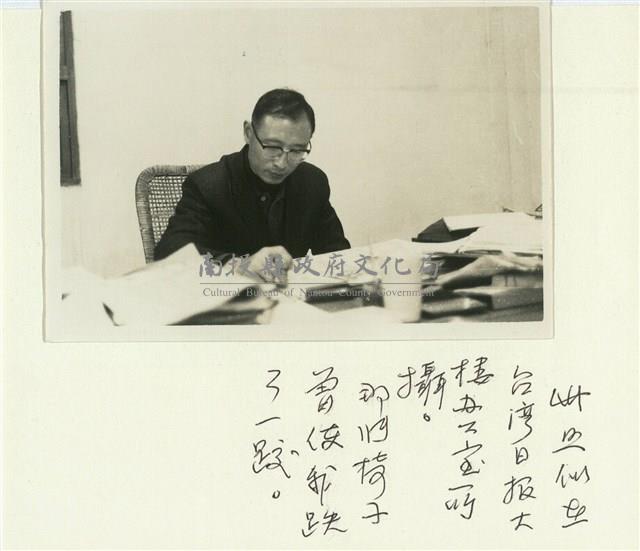 南投縣政府文化局
Cultural Bureau of Nantou County Government
此照似在
台湾日报大
楼办公室所
攝。
那隻椅子
曾使我跌
了一跤。